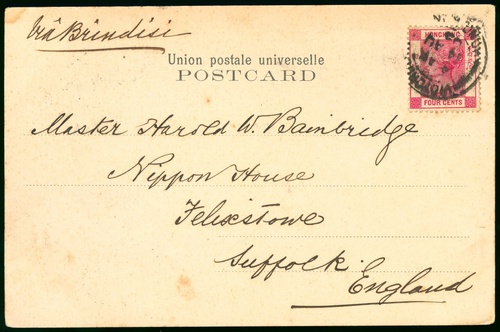 Via Brindisi
Union postale universelle
POSTCARD
HONG KONG
FOUR CENTS
Master Harold W. Bainbridge
Nippon House
Felixstowe
Suffolk
England